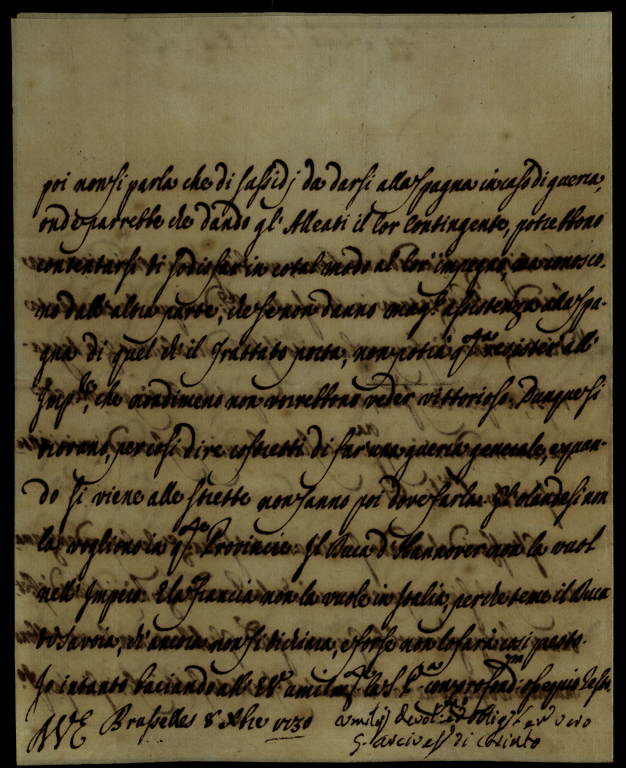 poi non si parla che di sussidj da darsi alla Spagna in caso di guerra,
onde parrebbe che dando gl' Alleati il lor contingente, potrebbono
contentarsi di sodisfar in cotal modo al lor impegno, ma conosco-
no dall' altra parte, che se non danno magg.r assistenza alla Spa-
gna di quel ch' il Trattato porta, non potrà q.sta resister all'
Imp.re, che niodimeno non vorrebbono veder vittorioso. Dunque si
trovano, per così dire costretti di far una guerra generale, e quan-
do si viene alle strette non sanno poi dove farla. Gl' Olandesi non
la vogliono in q.ste Provincie. Il Duca d' Hannover non la vuol
nell' Impero. E la Francia non la vuole in Italia, perche teme il Duca
di Savoia, ch' ancora non si dichiara, e forse non lo farà così presto.
Io intanto baciando all' E.V. umilm.te la S. P.a con profond.mo ossequio resto
WE Brusselles 8 Xbre 1730
Umilis. devot. ed obligs. ser. vero
G. Arcives. di Corinto